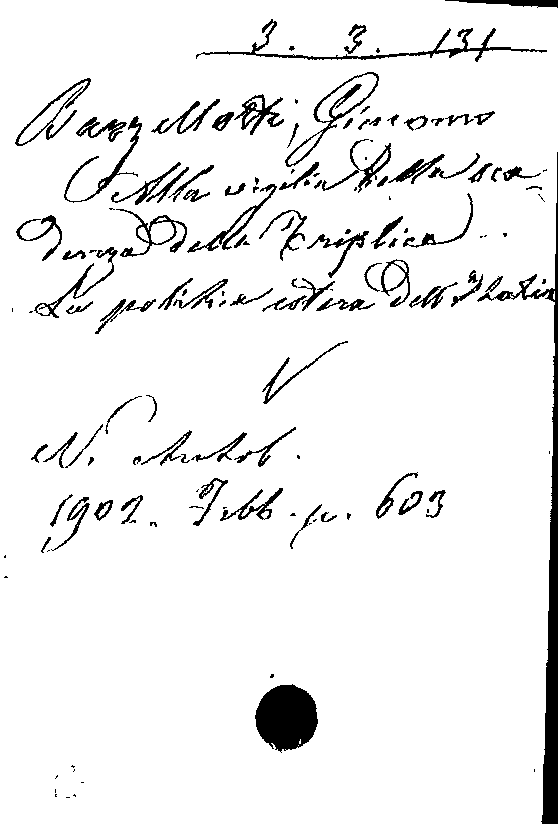 3. 3. 131
Barzellotti, Giacomo
Alla vigilia della sca-
denza della Triplice
La politica estera dell'Italia
N. Antol.
1902. Febb. p. 603